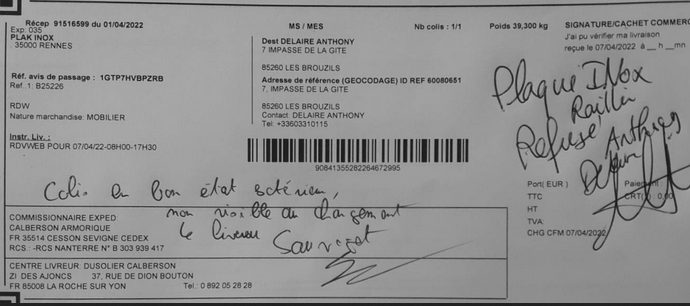 Récep 91516599 du 01/04/2022
MS / MES
Nb colis : 1/1
Poids 39,300 kg
SIGNATURE/CACHET COMMERC
Exp: 035
PLAK INOX
35000 RENNES
Réf. avis de passage : 1GTP7HVBPZRB
Ref. 1: B25226
RDW
Nature marchandise: MOBILIER
Instr. Liv. :
RDVWEB POUR 07/04/22-08H00-17H30
Dest DELAIRE ANTHONY
7 IMPASSE DE LA GITE
85260 LES BROUZILS
Adresse de référence (GEOCODAGE) ID REF 60080651
7, IMPASSE DE LA GITE
85260 LES BROUZILS
Contact: DELAIRE ANTHONY
Tel: +33603310115
90841355282264672995
J'ai pu vérifier ma livraison
reçue le 07/04/2022 à __h__mn
Plaque INox
Refusé
Anthony
Port( EUR )
TTC
HT
TVA:
CHG CFM 07/04/2022
Colis en bon état extérieur,
non visible au chargement
le livreur
COMMISSIONNAIRE EXPED
CALBERSON ARMORIQUE
FR 35514 CESSON SEVIGNE CEDEX
RCS : -RCS NANTERRE N° B 303 939 417
CENTRE LIVREUR: DUSOLIER CALBERSON
ZI DES AJONCS 37, RUE DE DION BOUTON
FR 85008 LA ROCHE SUR YON Tel.: 0 892 05 28 28